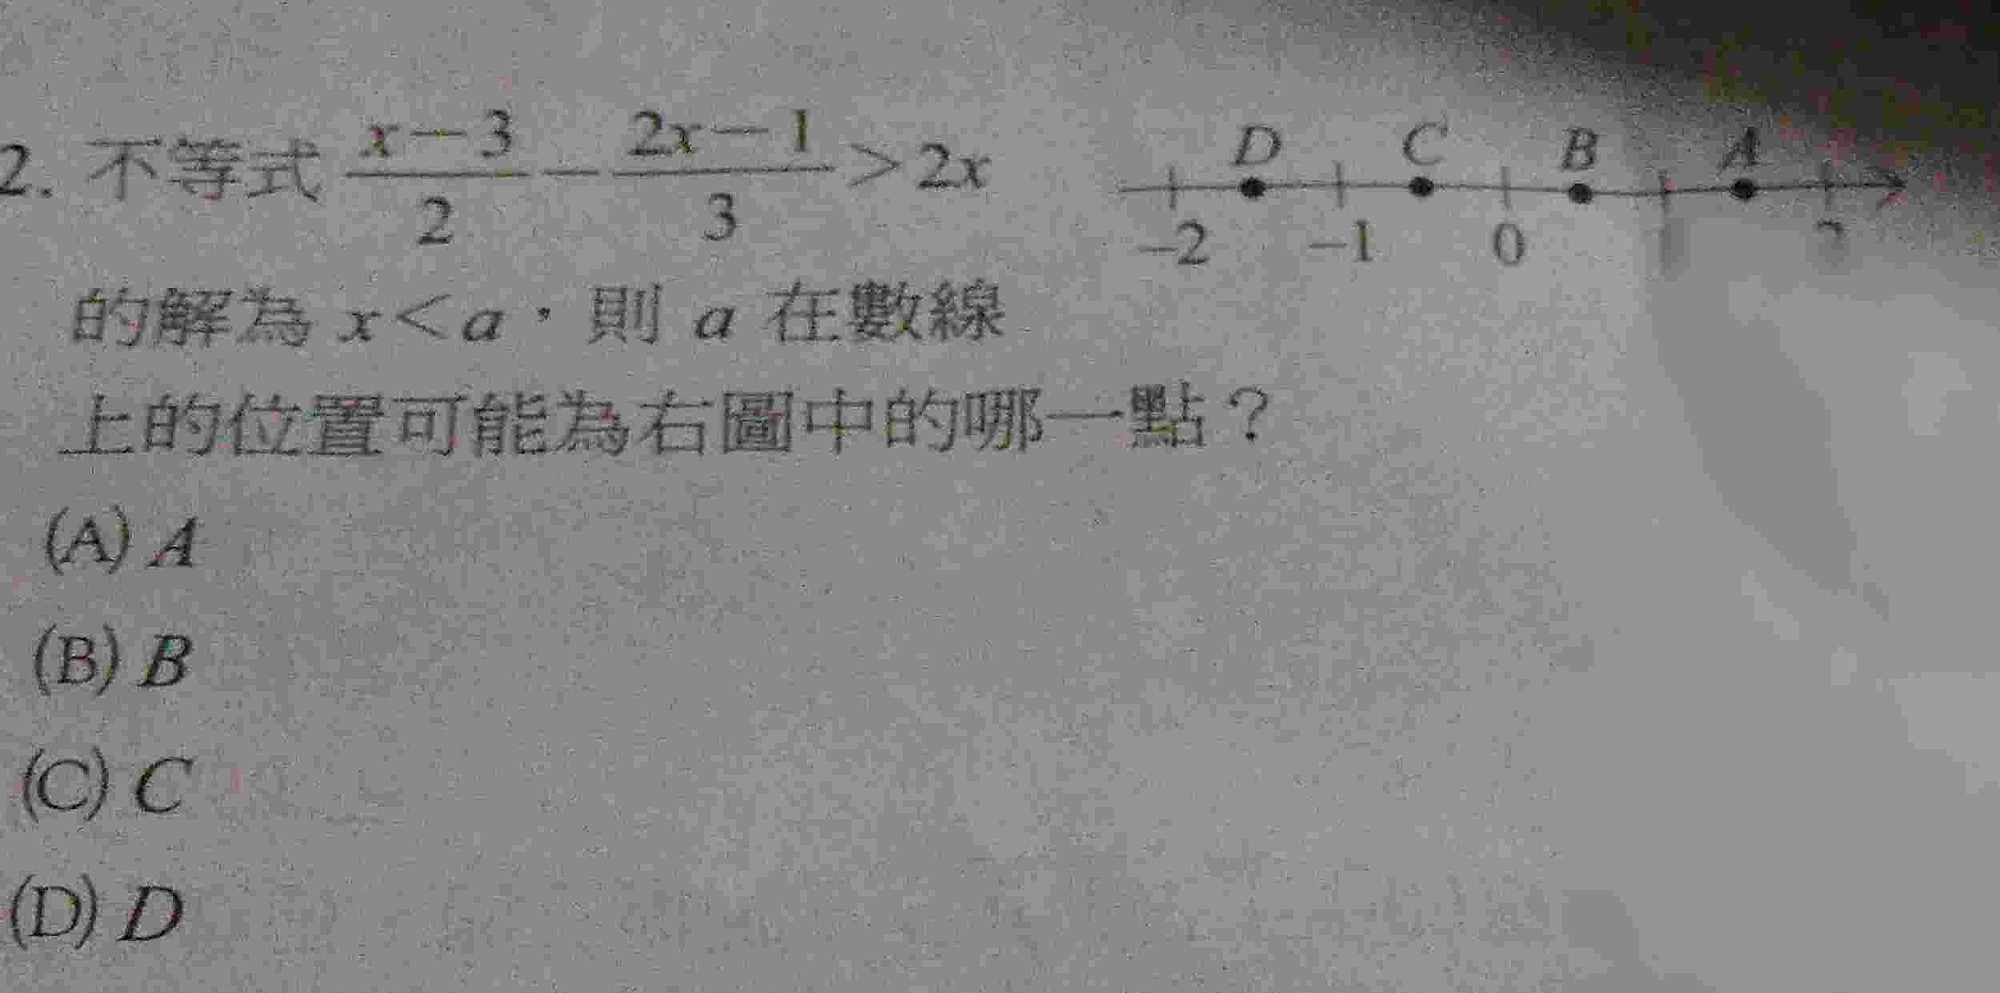 2. 不等式 \frac{x-3}{2} - \frac{2x-1}{3} > 2x
的解為 x<a，則 a 在數線
上的位置可能為右圖中的哪一點？
D C B A
-2 -1 0 1 2
(A) A
(B) B
(C) C
(D) D